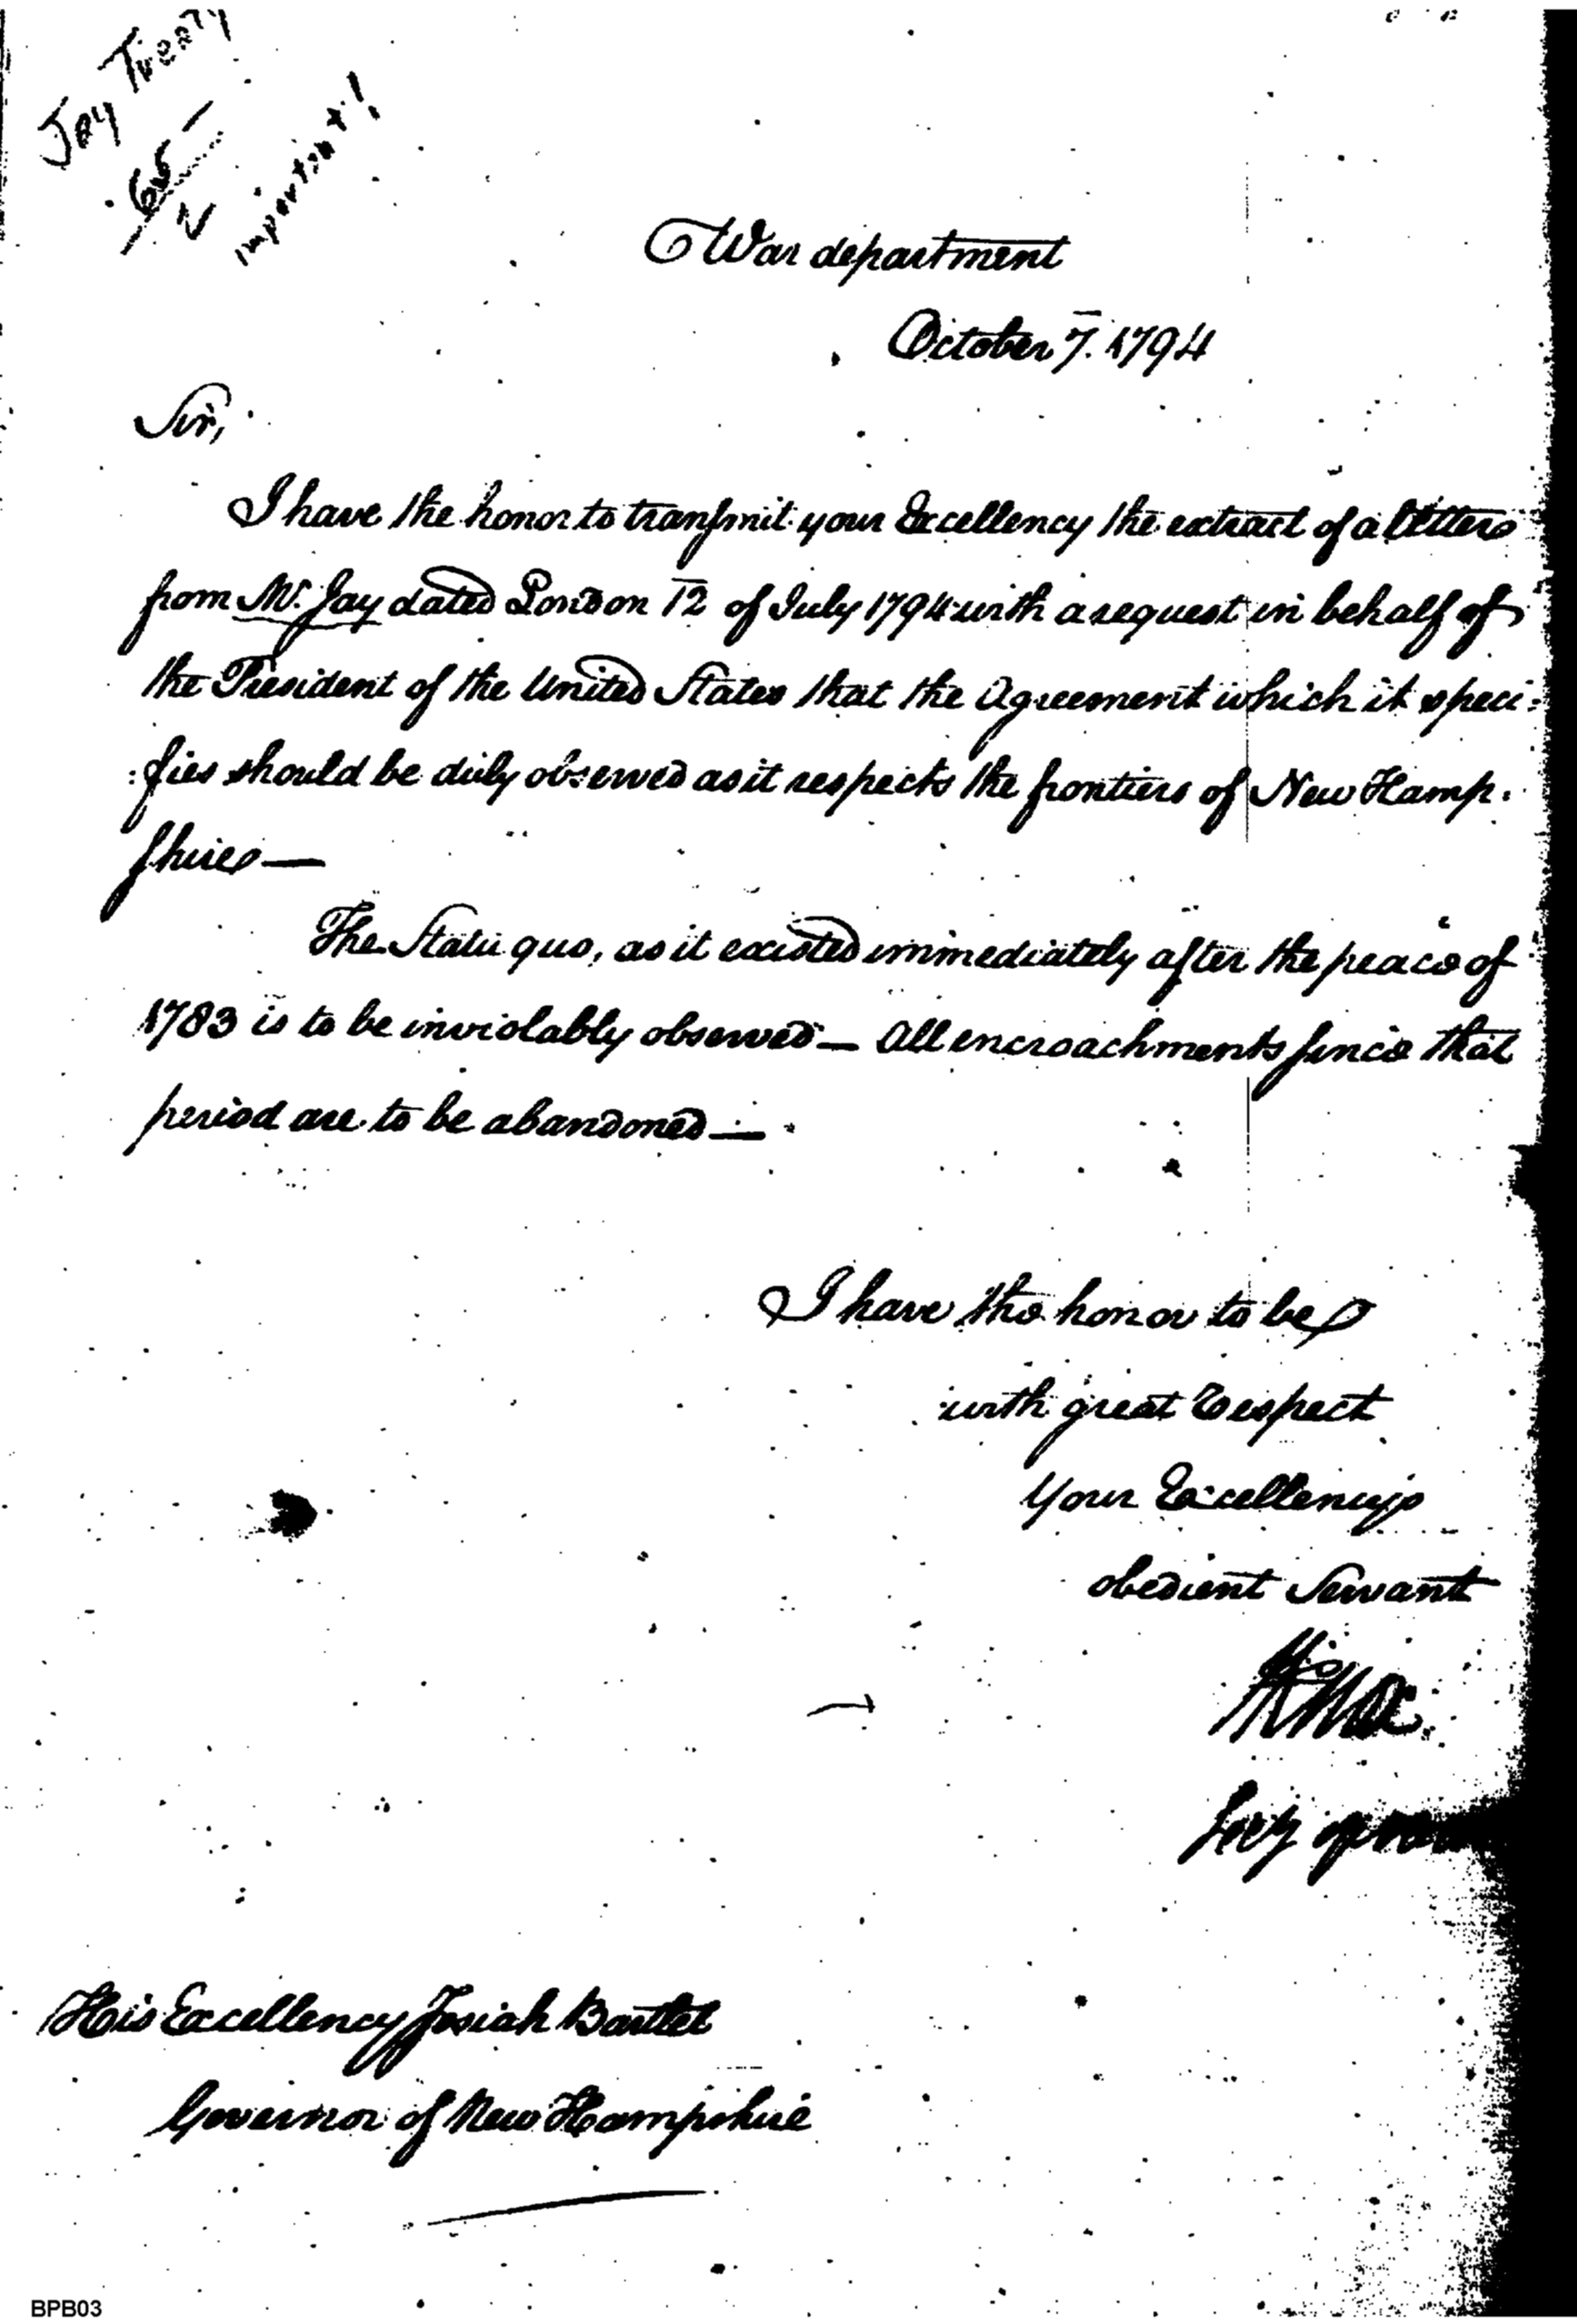 Jay Treaty
65 –
N
important!
War department
October 7. 1794
Sir,
I have the honor to transmit your Excellency the extract of a letter
from Mr. Jay dated London 12 of July 1794 with a request in behalf of
the President of the United States that the Agreement which it speci:
:fies should be duly observed as it respects the frontiers of New Hamp:
shire—
The Statu quo, as it existed immediately after the peace of
1783 is to be inviolably observed — All encroachments since that
period are to be abandoned —
I have the honor to be
with great respect
Your Excellencys
obedient Servant
HKnox
Secy of war
His Excellency Josiah Bartlet
Governor of New Hampshire
BPB03